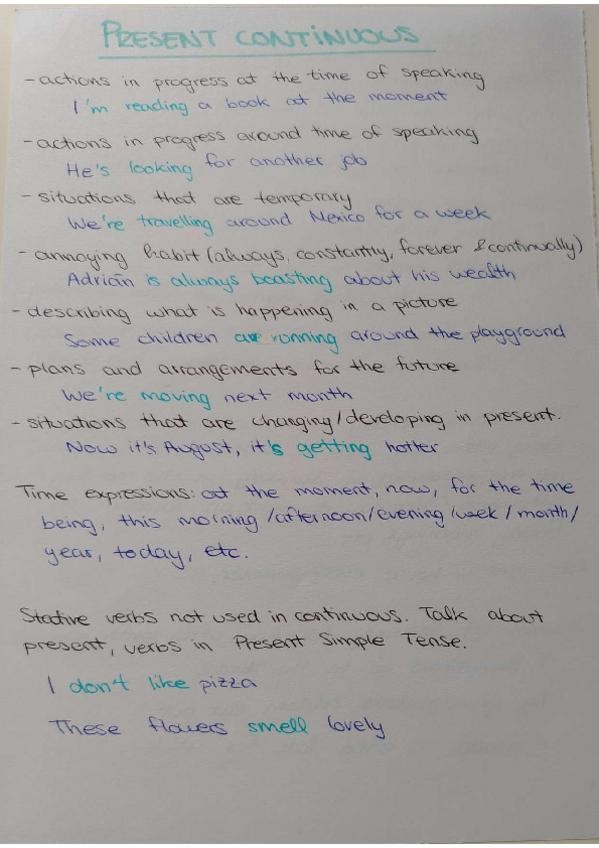 PRESENT CONTINUOUS
- actions in progress at the time of speaking
I'm reading a book at the moment
- actions in progress around time of speaking
He's looking for another job
- situations that are temporary
We're travelling around Mexico for a week
- annoying habit (always, constantly, forever & continually)
Adrian is always boasting about his wealth
- describing what is happening in a picture
Some children are running around the playground
- plans and arrangements for the future
We're moving next month
- situations that are changing/developing in present.
Now it's August, it's getting hotter
Time expressions: at the moment, now, for the time
being, this morning/afternoon/evening/week/month/
year, today, etc.
Stative verbs not used in continuous. Talk about
present, verbs in Present Simple Tense.
I don't like pizza
These flowers smell lovely